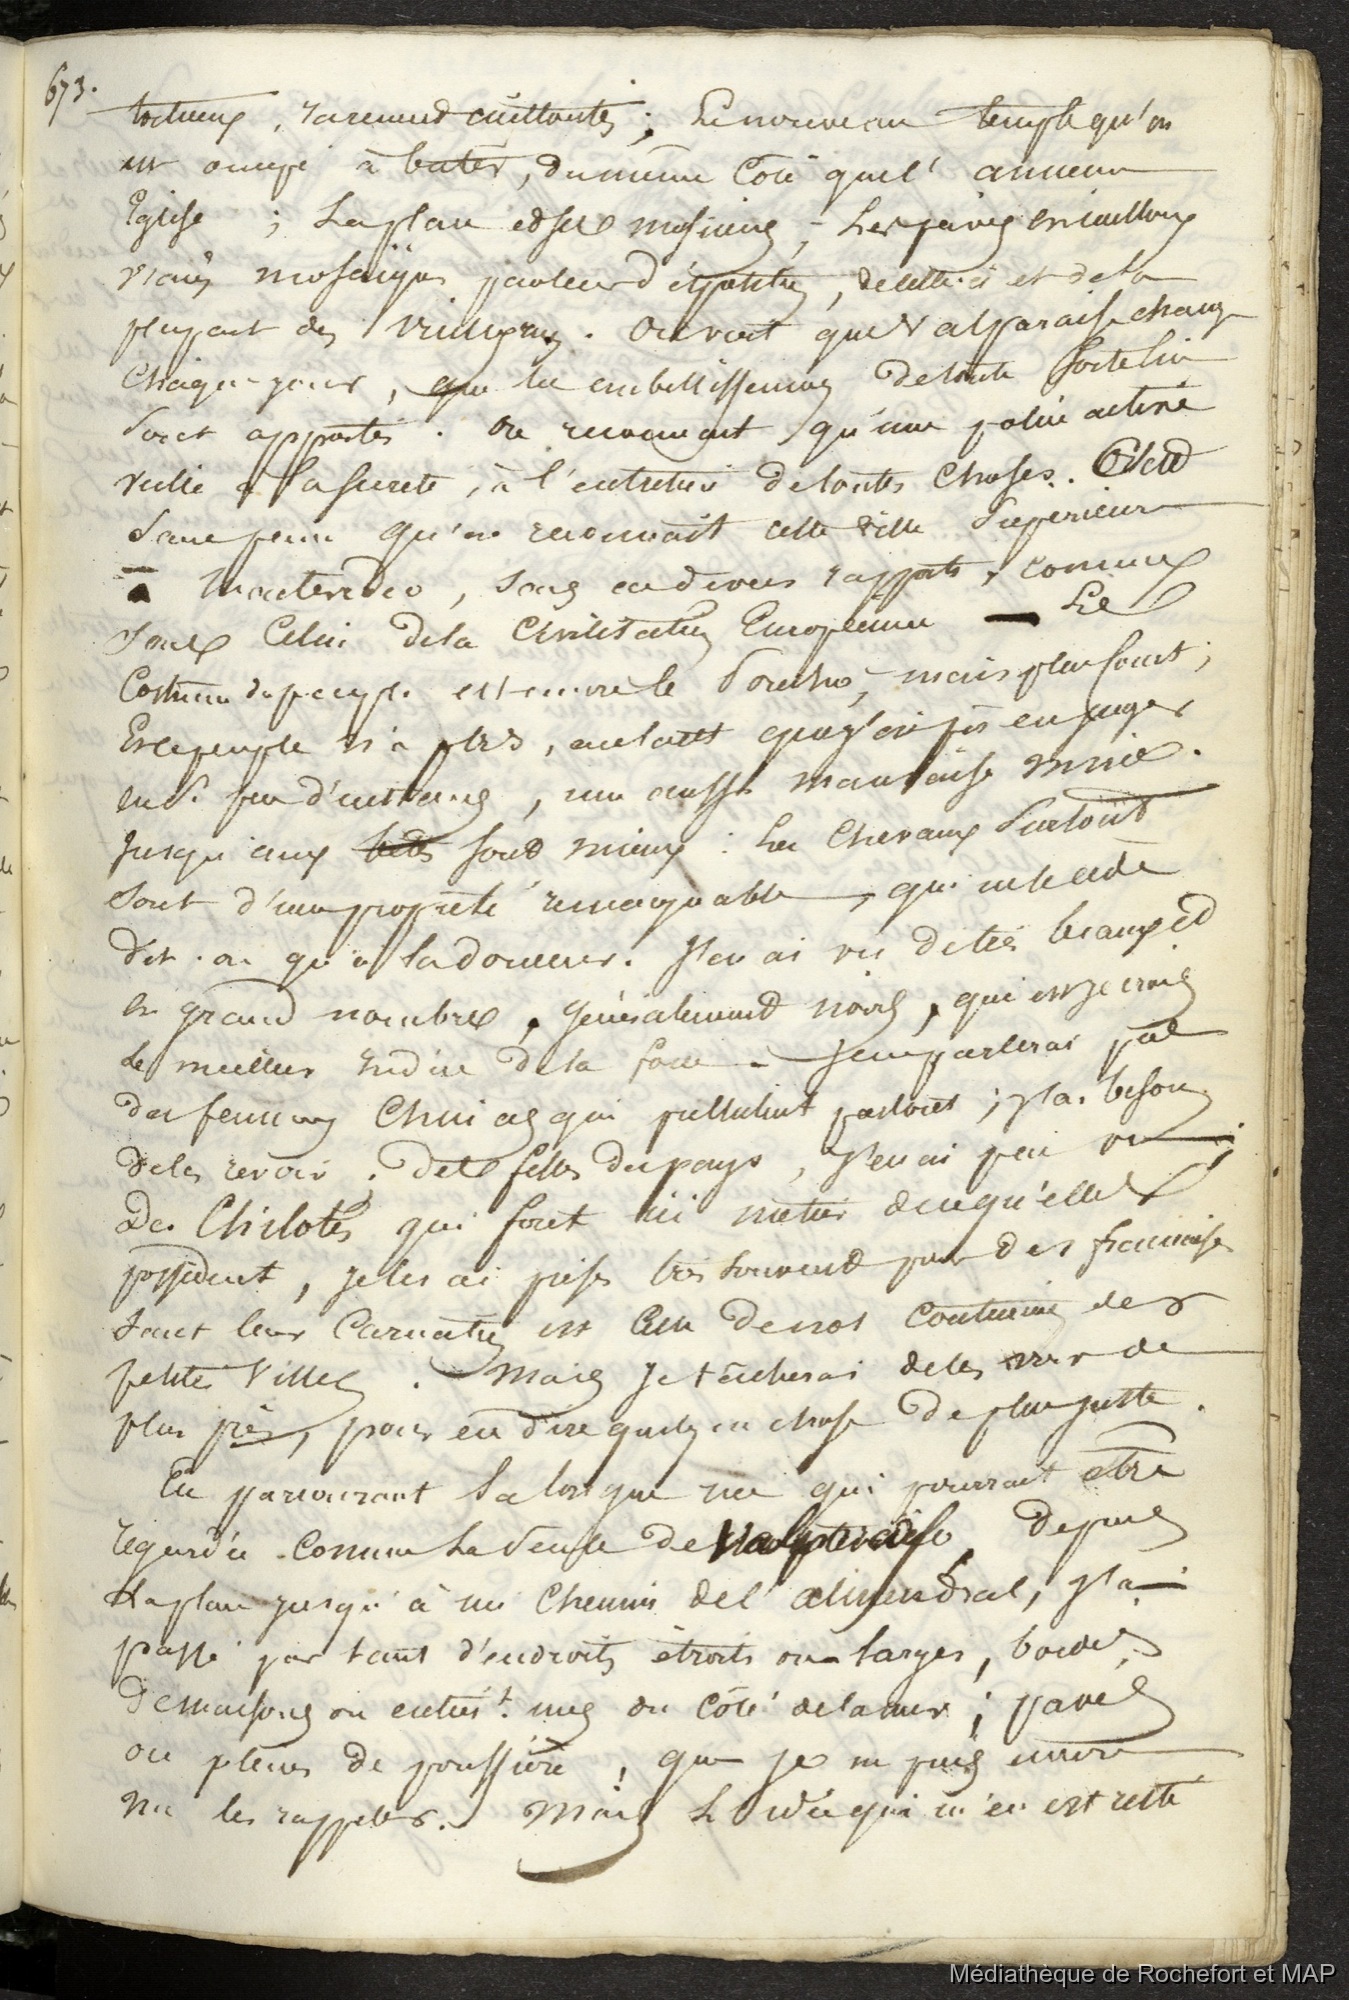 673.
tortueux, rarement ; Le nouveau temple qu'on
est occupé à batir, du même Côté que l'ancienne
Eglise ; La place ; Les pavés en cailloux
vrais mosaïques par leur , de celle-ci et de la
plupart des . On voit que Valparaiso change
Chaque jour, que les embellissemens de toute Sorte lui
Sont apportés . On reconnait qu'une police active
veille à la sureté, à l'entretien de toutes Choses. C'est
Sans peine qu'on reconnait cette ville Supérieure
à Montevideo, sous divers rapports, comme
Sous Celui de la Civilisation Européenne — Le
Costume du peuple est encore le Poncho, mais plus court ;
Et le peuple n'a plus, autant que j'ai pu en juger
en si peu d'instans, une aussi mauvaise mine.
Jusqu'aux betes sont mieux : Les Chevaux Surtout
Sont d'une propreté remarquable, qui ne le cède
Dit-on qu'à la douceur. J'en ai vu de très beaux et
en grand nombre, généralement noirs, qui est je crois
Le meilleur indice de la force - Je ne parlerai pas
des femmes qui pullulent partout ; j'ai besoin
de les revoir . Des filles du pays, j'en ai peu vu ;
Des Chilotes qui font ici métier de ce qu'elles
possèdent, je les ai prises très souvent pour des françaises
tant leur Carnation est Celle de nos des
petites Villes . Mais je tâcherai de les voir de
plus près, pour en dire quelque chose de plus juste .
En parcourant La longue rue qui pourrait être
regardée comme La Seule de Valparaiso, depuis
La place jusqu'à un Chemin de l'almendral, j'ai
passé par tant d'endroits étroits ou larges, bordés
de maisons ou entièrt. nus du côté de la mer ; pavés
ou pleins de poussière, que je ne puis encore
me les rappeler. Mais L'idée qui m'en est restée
Médiathèque de Rochefort et MAP